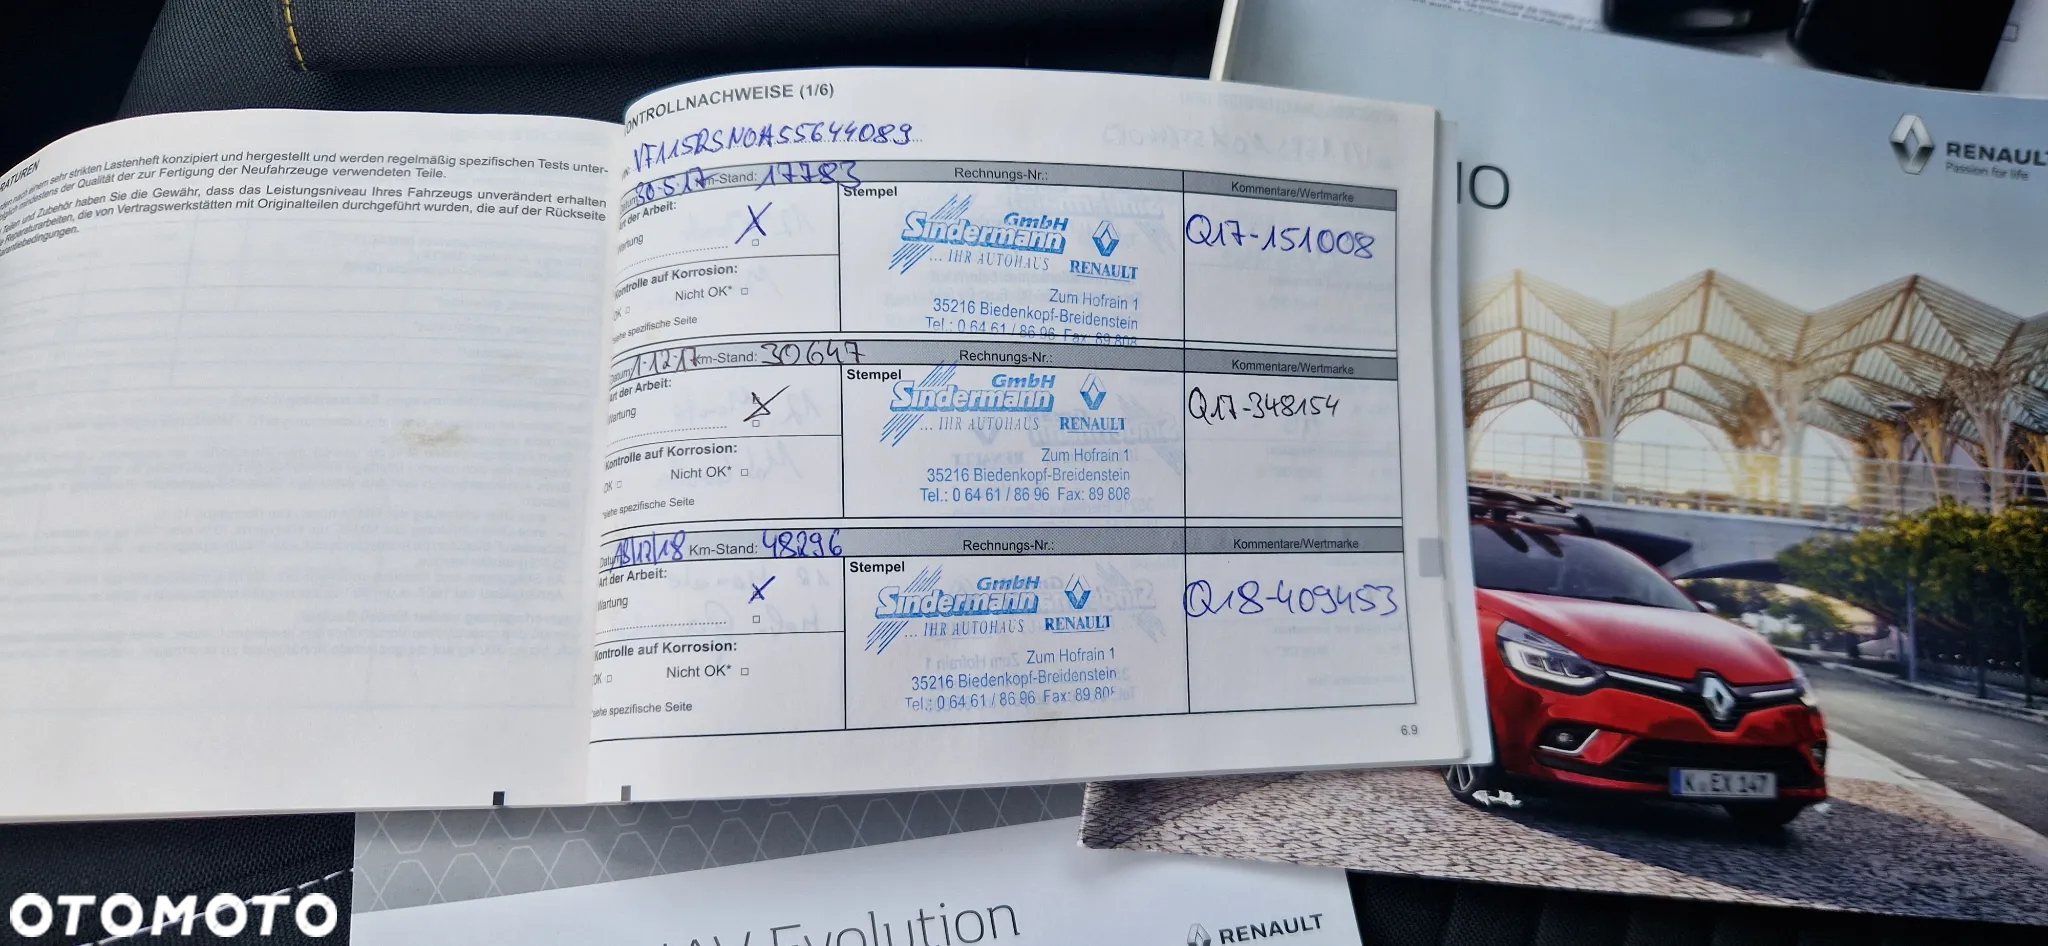 RATUREN
nach einem sehr strikten Lastenheft konzipiert und hergestellt und werden regelmäßig spezifischen Tests unter-
mindestens der Qualität der zur Fertigung der Neufahrzeuge verwendeten Teile.
Teilen und Zubehör haben Sie die Gewähr, dass das Leistungsniveau Ihres Fahrzeugs unverändert erhalten
Reparaturarbeiten, die von Vertragswerkstätten mit Originalteilen durchgeführt wurden, die auf der Rückseite
arantiebedingungen.
ONTROLLNACHWEISE (1/6)
VF115RSNOA55644089
Datum: 30.5.17 Km-Stand: 17783 Rechnungs-Nr.: Kommentare/Wertmarke
Art der Arbeit:
Wartung X
Kontrolle auf Korrosion:
OK Nicht OK*
*siehe spezifische Seite
Stempel
GmbH
Sindermann
... IHR AUTOHAUS RENAULT
Zum Hofrain 1
35216 Biedenkopf-Breidenstein
Tel.: 0 64 61 / 86 96 Fax: 89 808
Q17-151008
Datum: 1.12.17 Km-Stand: 30647 Rechnungs-Nr.: Kommentare/Wertmarke
Art der Arbeit:
Wartung X
Kontrolle auf Korrosion:
OK Nicht OK*
*siehe spezifische Seite
Stempel
GmbH
Sindermann
... IHR AUTOHAUS RENAULT
Zum Hofrain 1
35216 Biedenkopf-Breidenstein
Tel.: 0 64 61 / 86 96 Fax: 89 808
Q17-348154
Datum 18/12/18 Km-Stand: 48296 Rechnungs-Nr.: Kommentare/Wertmarke
Art der Arbeit:
Wartung X
Kontrolle auf Korrosion:
OK Nicht OK*
*siehe spezifische Seite
Stempel
GmbH
Sindermann
... IHR AUTOHAUS RENAULT
Zum Hofrain 1
35216 Biedenkopf-Breidenstein
Tel.: 0 64 61 / 86 96 Fax: 89 808
Q18-409453
6.9
IO
RENAULT
Passion for life
K EX 147
NAV Evolution
RENAULT
OTOMOTO